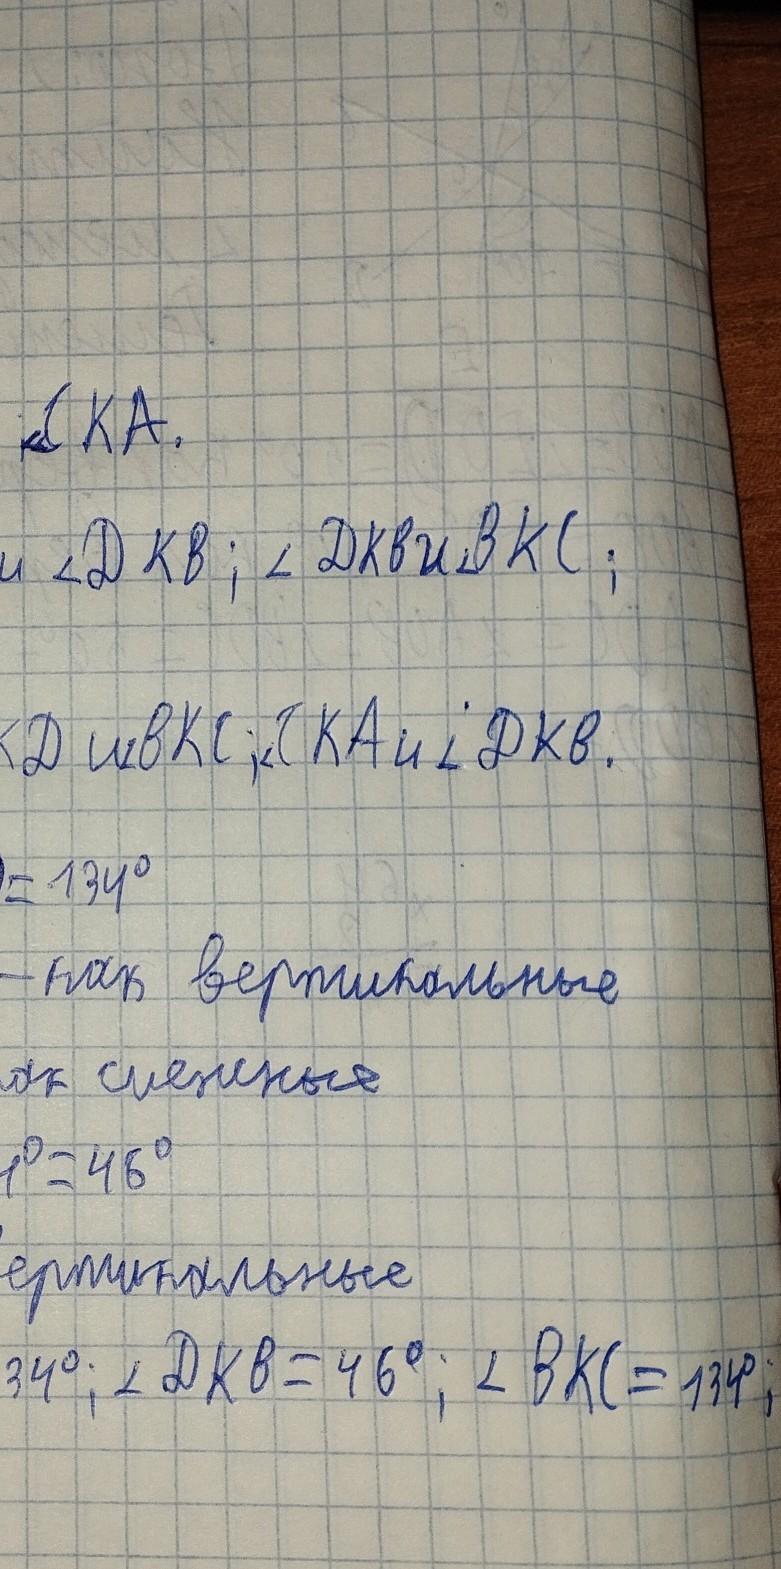 ∠CKA.
и ∠DKB; ∠DKB и ∠BKC;
KD и ∠BKC; ∠CKA и ∠DKB.
=134°
—как вертикальные
ак смежные
°=46°
вертикальные
34°; ∠DKB=46°; ∠BKC=134°;